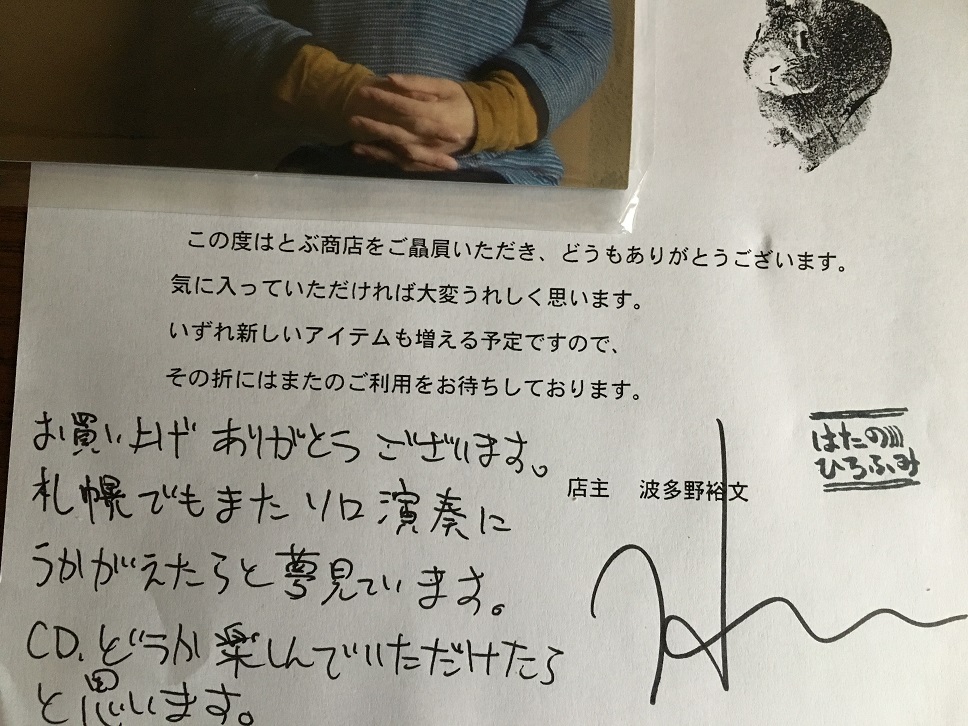 この度はとぶ商店をご贔屓いただき、どうもありがとうございます。
気に入っていただければ大変うれしく思います。
いずれ新しいアイテムも増える予定ですので、
その折にはまたのご利用をお待ちしております。
店主 波多野裕文
はたの
ひろふみ
お買い上げ ありがとう ございます。
札幌でもまた ソロ演奏に
うかがえたらと夢見ています。
CD、どうか楽しんでいただけたら
と思います。